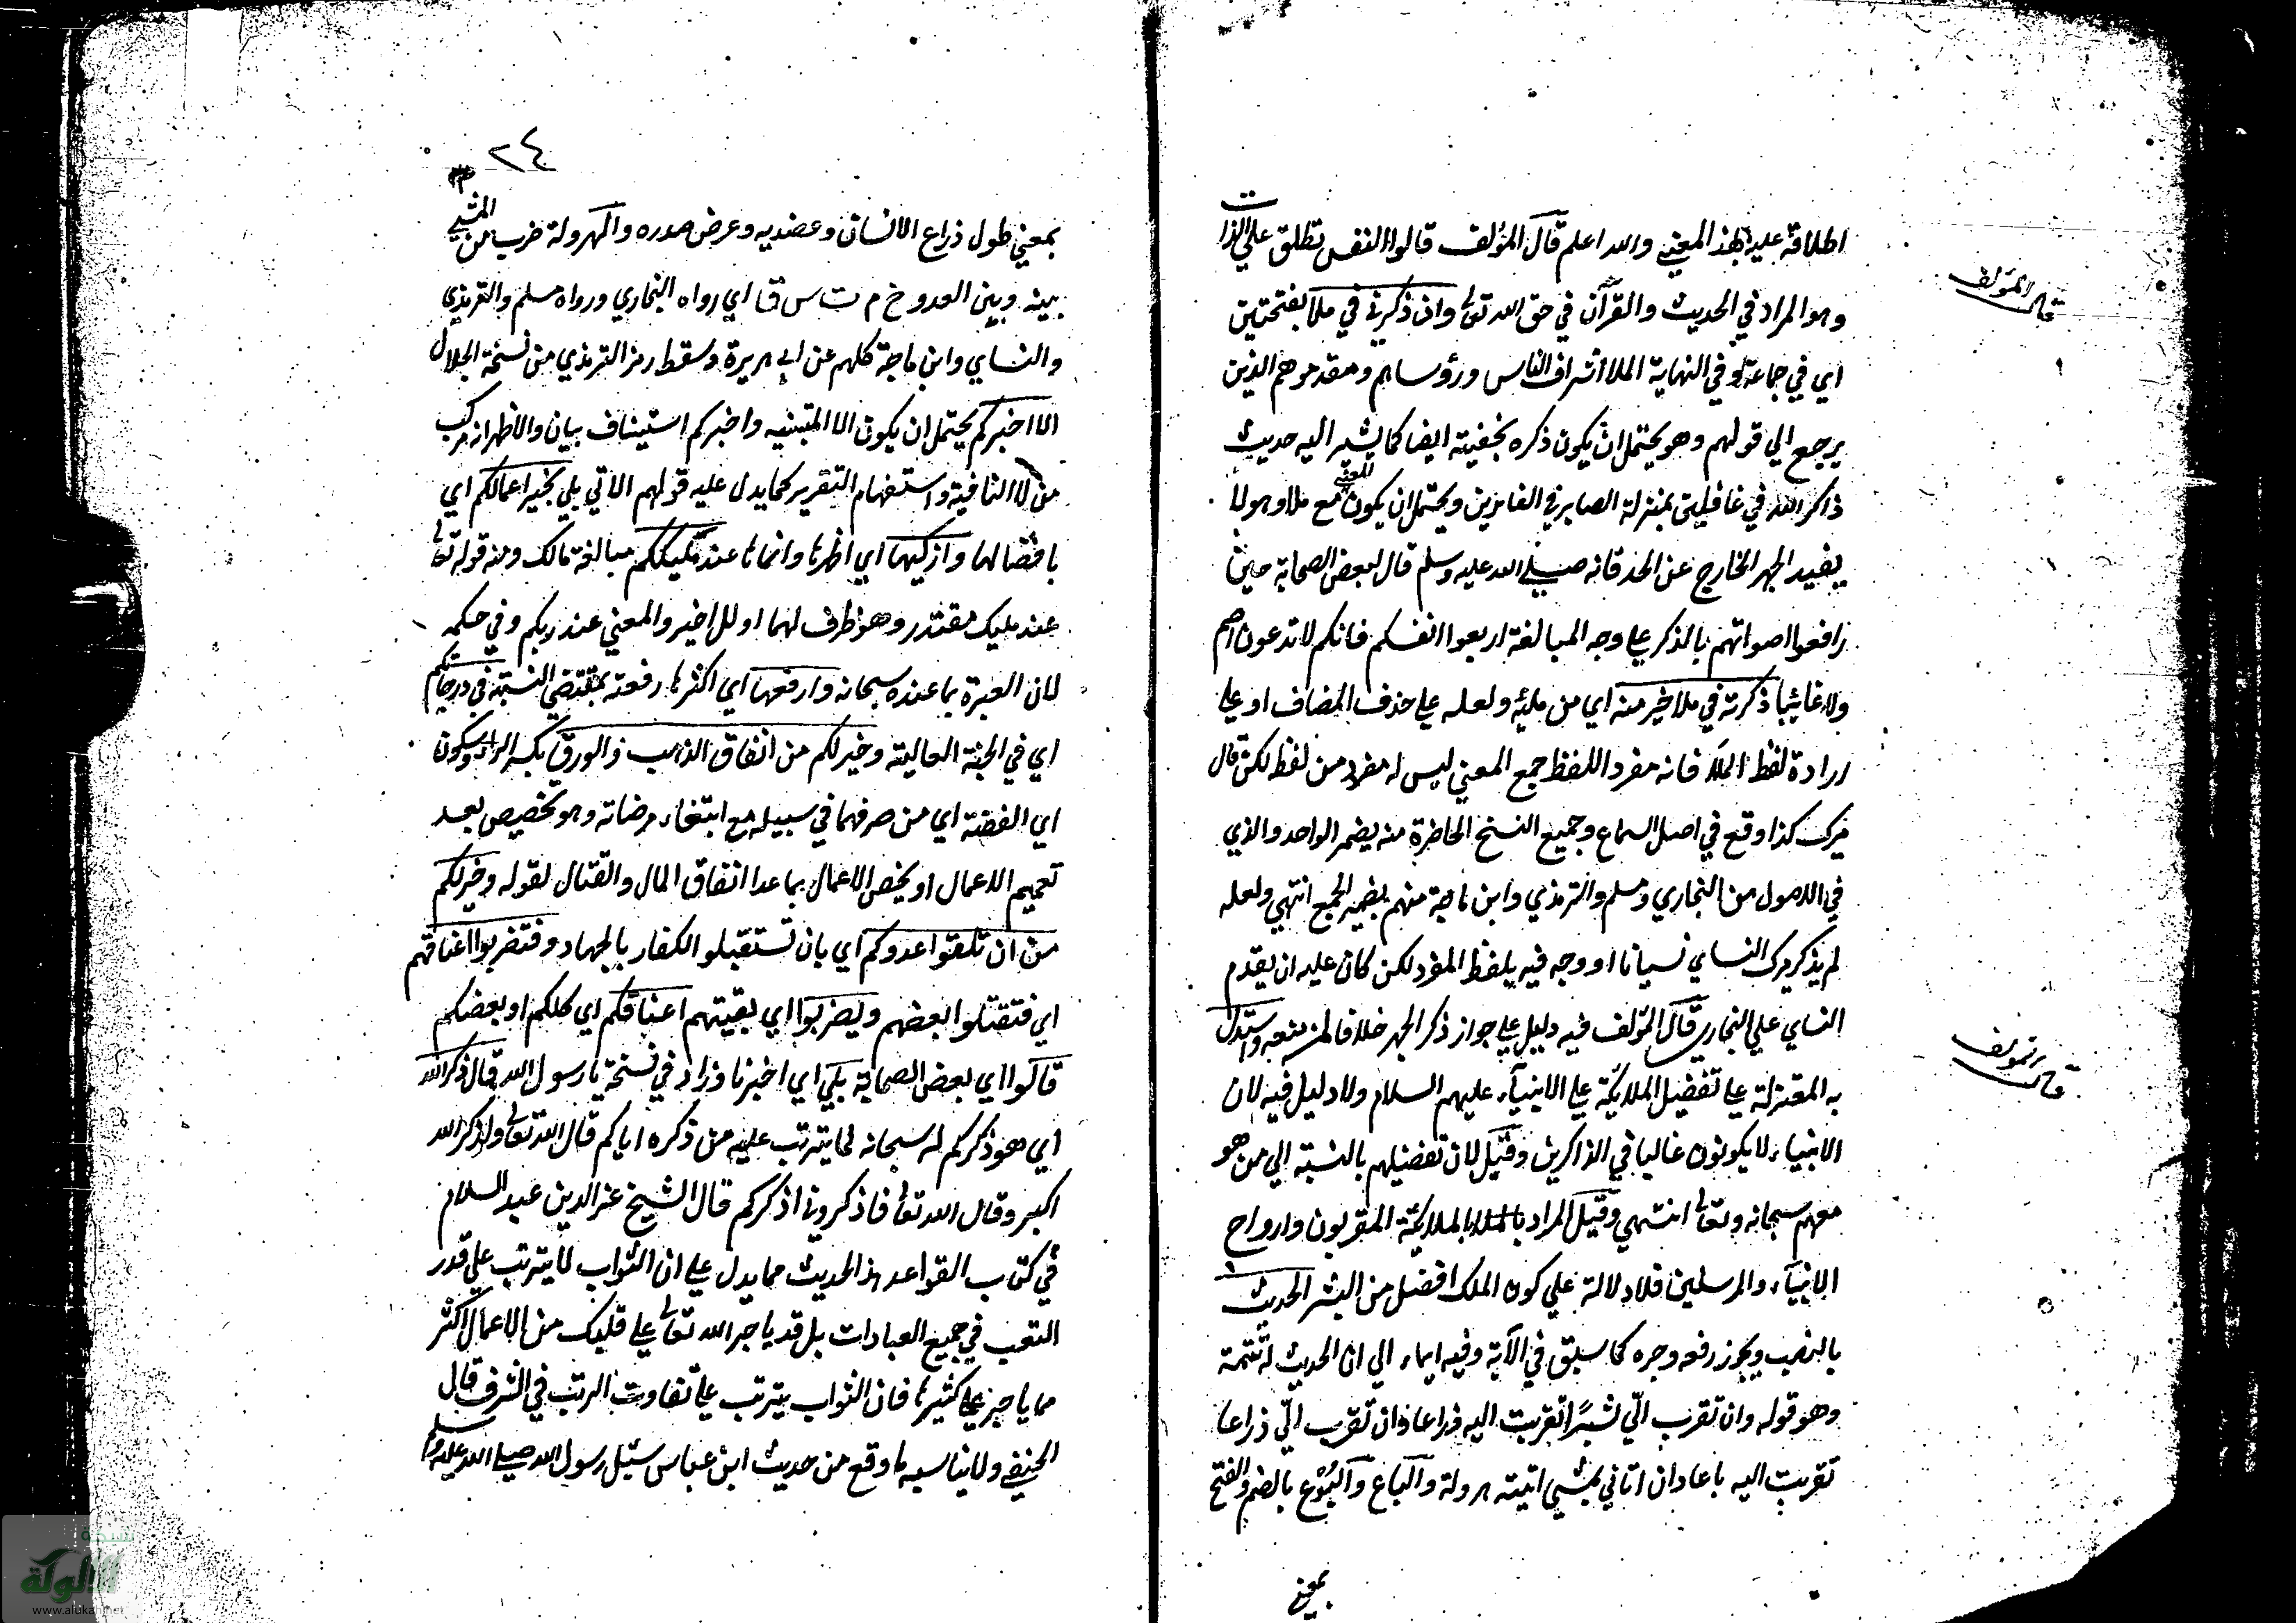 اطلاقه عليه بهذا المعني والله اعلم قال المؤلف قالوا النفس تطلق علي الذات
وهو المراد في الحديث والقرآن في حق الله تعالى وان ذكرني في ملأ بفتحتين
اي في جماعة وفي النهاية الملا اشراف الناس ورؤساهم ومقدموهم الذين
يرجع الي قولهم وهو يحتمل ان يكون ذكره بخفية ايضا كما يشير اليه حديث
ذاكر الله في غافلين بمنزلة الصابر في الفارين ويحتمل ان يكون المعني مع ملا وهو لا
يفيد الجهر الخارج عن الحد فانه صلي الله عليه وسلم قال لبعض الصحابة حين
رافعوا اصواتهم بالذكر علي وجه المبالغة اربعوا انفسكم فانكم لا تدعون اصم
ولا غائبا ذكرته في ملا خير منه اي من ملئه ولعله علي حذف المضاف او علي
ارادة لفظ الملا فانه مفرد اللفظ جمع المعني ليس له مفرد من لفظه لكن قال
ميرك كذا وقع في اصل السماع وجميع النسخ الحاضرة منه بضمير الواحد والذي
في الاصول من البخاري ومسلم والترمذي وابن ماجة منهم بضمير الجمع انتهي ولعله
لم يذكر ميرك النساي نسيانا او وجه فيه بلفظ المفرد لكن كان عليه ان يقدم
النساي علي البخاري قال المؤلف فيه دليل علي جواز ذكر الجهر خلافا لمن منعه واستدل
به المعتزلة علي تفضيل الملائكة علي الانبياء عليهم السلام ولا دليل فيه لان
الانبياء لا يكونون غالبا في الذاكرين وقيل لان تفضيلهم بالنسبة الي من هو
معهم سبحانه وتعالى انتهي وقيل المراد بالملا الملائكة المقربون وارواح
الانبياء والمرسلين فلا دلالة علي كون الملك افضل من البشر الحديث
بالنصب ويجوز رفعه وجره كما سبق في الآية وفيه ايماء الي ان الحديث له تتمة
وهو قوله وان تقرب الي شبرا تقربت اليه ذراعا وان تقرب الي ذراعا
تقربت اليه باعا وان اتاني يمشي اتيته هرولة والباع والبوع بالضم والفتح
بمعني
قال المؤلف
قال المؤلف
٢٤
بمعني طول ذراع الانسان وعضديه وعرض صدره والهرولة ضرب من المشي
بينه وبين العدو خ م ت س ق اي رواه البخاري ورواه مسلم والترمذي
والنساي وابن ماجة كلهم عن ابي هريرة وسقط رمز الترمذي من نسخة الجلال
الا اخبركم يحتمل ان يكون الا المتبنيه واخبركم استيناف بيان والاظهر انه مركب
من لا النافية واستفهام التقرير كما يدل عليه قولهم الاتي بلي بخير اعمالكم اي
بافضالها وازكيها اي اطهرها وانماها عند مليككم مبالغة مالك ومنه قوله تعالى
عند مليك مقتدر وهو ظرف لهما او للاخير والمعني عند ربكم وفي حكمه
لان العبرة بما عنده سبحانه وارفعها اي اكثرها رفعة بمقتضي النسبة في درجاتكم
اي في الجنة العالية وخير لكم من انفاق الذهب والورق بكسر الراء وسكون
اي الفضة اي من صرفهما في سبيله مع ابتغاء مرضاته وهو تخصيص بعد
تعميم الاعمال او يخص الاعمال بما عدا انفاق المال والقتال لقوله وخير لكم
من ان تلقوا عدوكم اي بان تستقبلوا الكفار بالجهاد وفتضربوا اعناقهم
اي فتقتلوا بعضهم ويضربوا اي بقيتهم اعناقكم اي كلكم او بعضكم
قالوا اي بعض الصحابة بلي اي اخبرنا وزاد في نسخة يا رسول الله قال ذكر الله
اي هو ذكركم له سبحانه لما يترتب عليه من ذكره اياكم قال الله تعالى ولذكر الله
اكبر وقال الله تعالى فاذكروني اذكركم قال الشيخ عز الدين عبد السلام
في كتاب القواعد هذا الحديث مما يدل علي ان الثواب لا يترتب علي قدر
التعب في جميع العبادات بل قد ياجر الله تعالى علي قليل من الاعمال اكثر
مما ياجر علي كثيرها فان الثواب يترتب علي تفاوت الرتب في الشرف قال
الحنفي ولا يناسبه ما وقع من حديث ابن عباس سئل رسول الله صلي الله عليه وسلم
شبكة
الألوكة
www.alukah.net